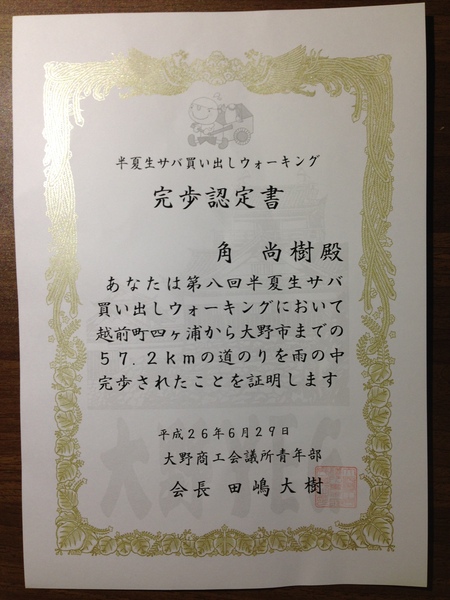 半夏生サバ買い出しウォーキング
完歩認定書
角 尚樹殿
あなたは第八回半夏生サバ
買い出しウォーキングにおいて
越前町四ヶ浦から大野市までの
57.2kmの道のりを雨の中
完歩されたことを証明します
平成26年6月29日
大野商工会議所青年部
会長 田嶋大樹